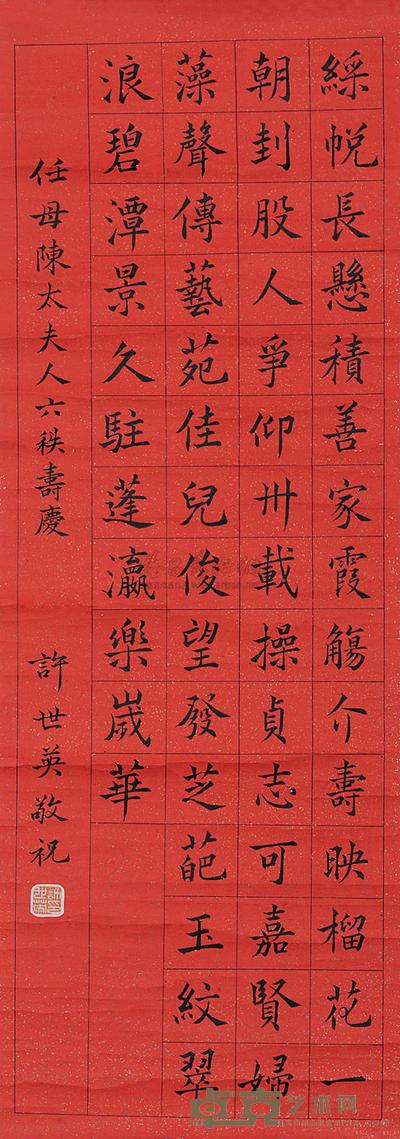 綵帨長懸積善家霞觴介壽映榴花一
朝刲股人爭仰卅載操貞志可嘉賢婦
藻聲傳藝苑佳兒俊望發芝葩玉紋翠
浪碧潭景久駐蓬瀛樂歲華
任母陳太夫人六秩壽慶
許世英敬祝
艺术网